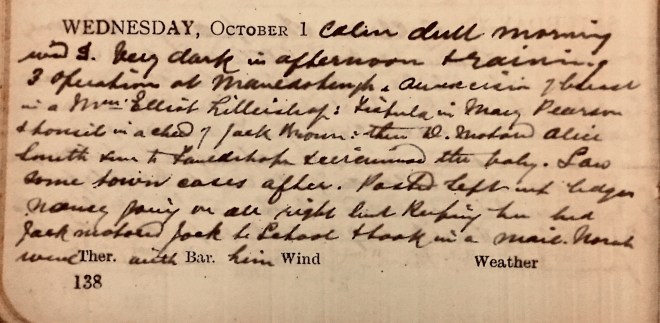 WEDNESDAY, OCTOBER 1 Calm dull morning
wind S. Very dark in afternoon & raining.
3 operations at & an excision of breast
in a Mrs Elliot : Fistula in Mary Pearson
& tonsil in a child of Jack Brown : then D. motored Alice
Smith to & circumcised the baby. Saw
some town cases after. Posted left up ledger
Nancy going on all right but keeping her bed
Jack motored Jock to School & took in a maid. Norah
went Ther. with Bar. him Wind Weather
138